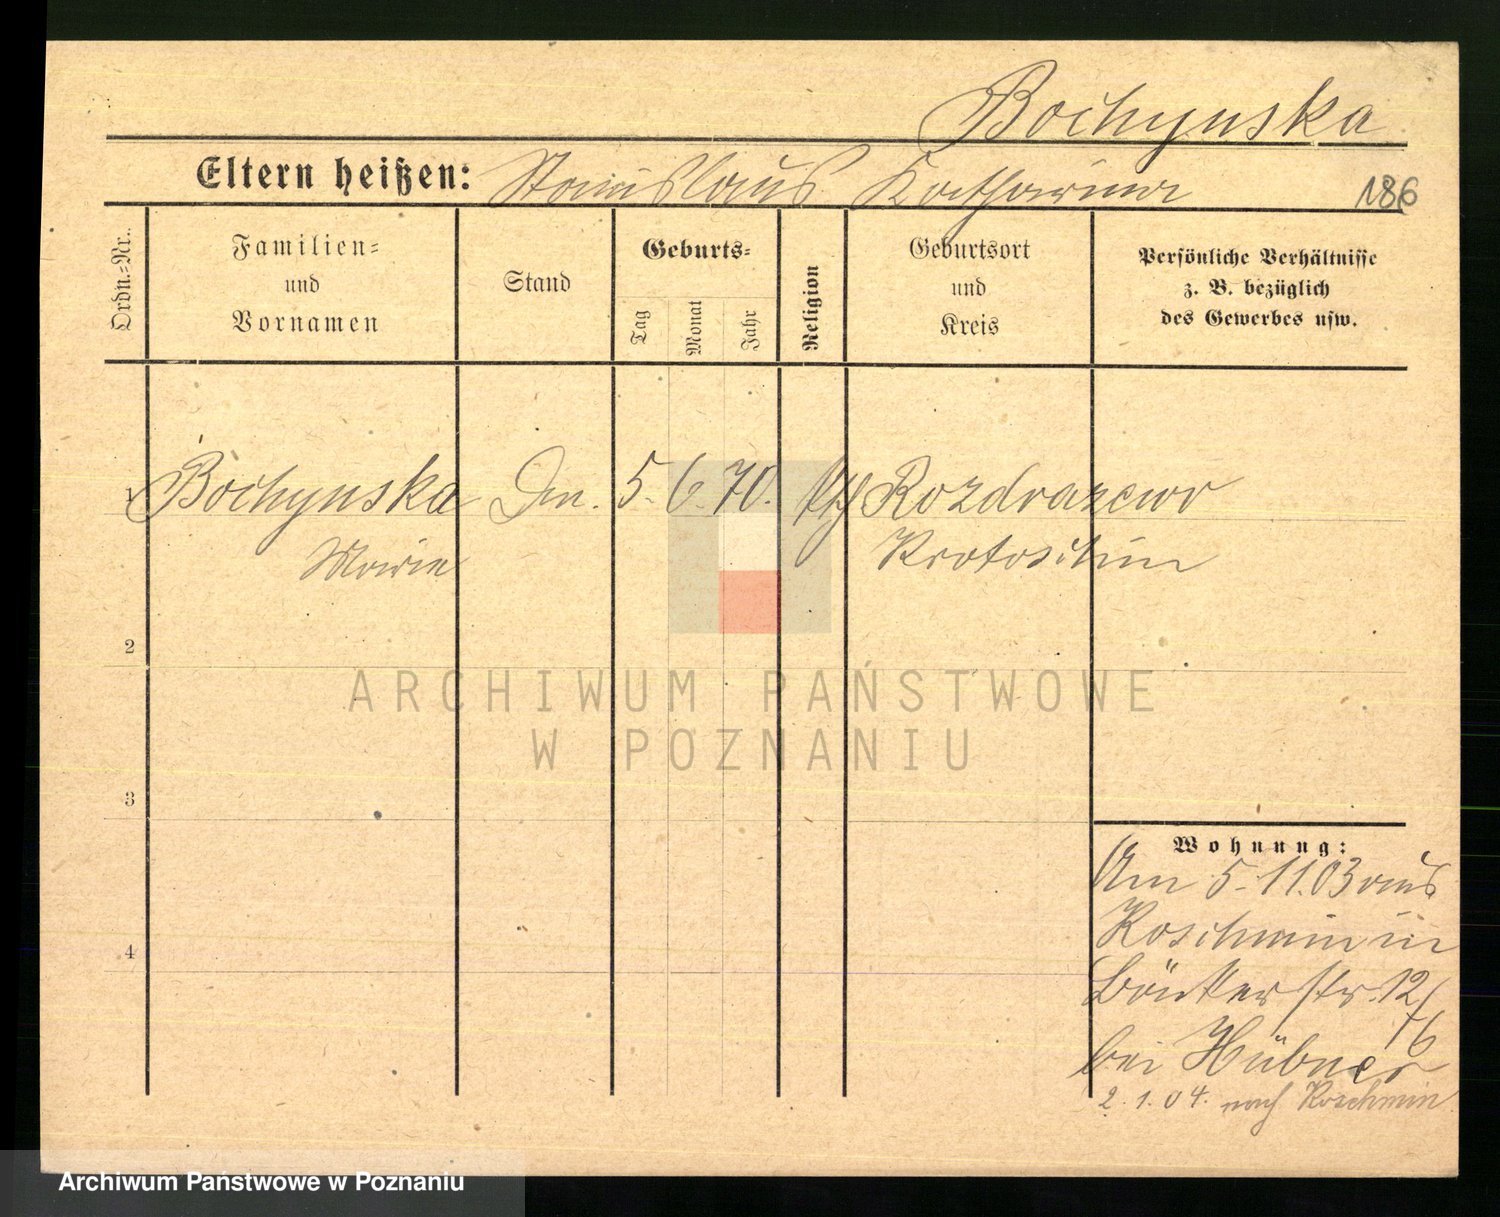 Bochynska
Eltern heißen: Stanislaus Katharina
186
Ordn.-Nr.
Familien-
und
Vornamen
Stand
Geburts-
Tag
Monat
Jahr
Religion
Geburtsort
und
Kreis
Persönliche Verhältnisse
z. B. bezüglich
des Gewerbes usw.
1 Bochynska 5. 6. 70. Rozdrazewo
Marie Krotoschin
2
ARCHIWUM PAŃSTWOWE
W POZNANIU
3
Wohnung:
Am 5. 11. 03 aus
Koschmin in
str. 12/
16
bei Hübner
2. 1. 04. nach Koschmin
4
Archiwum Państwowe w Poznaniu